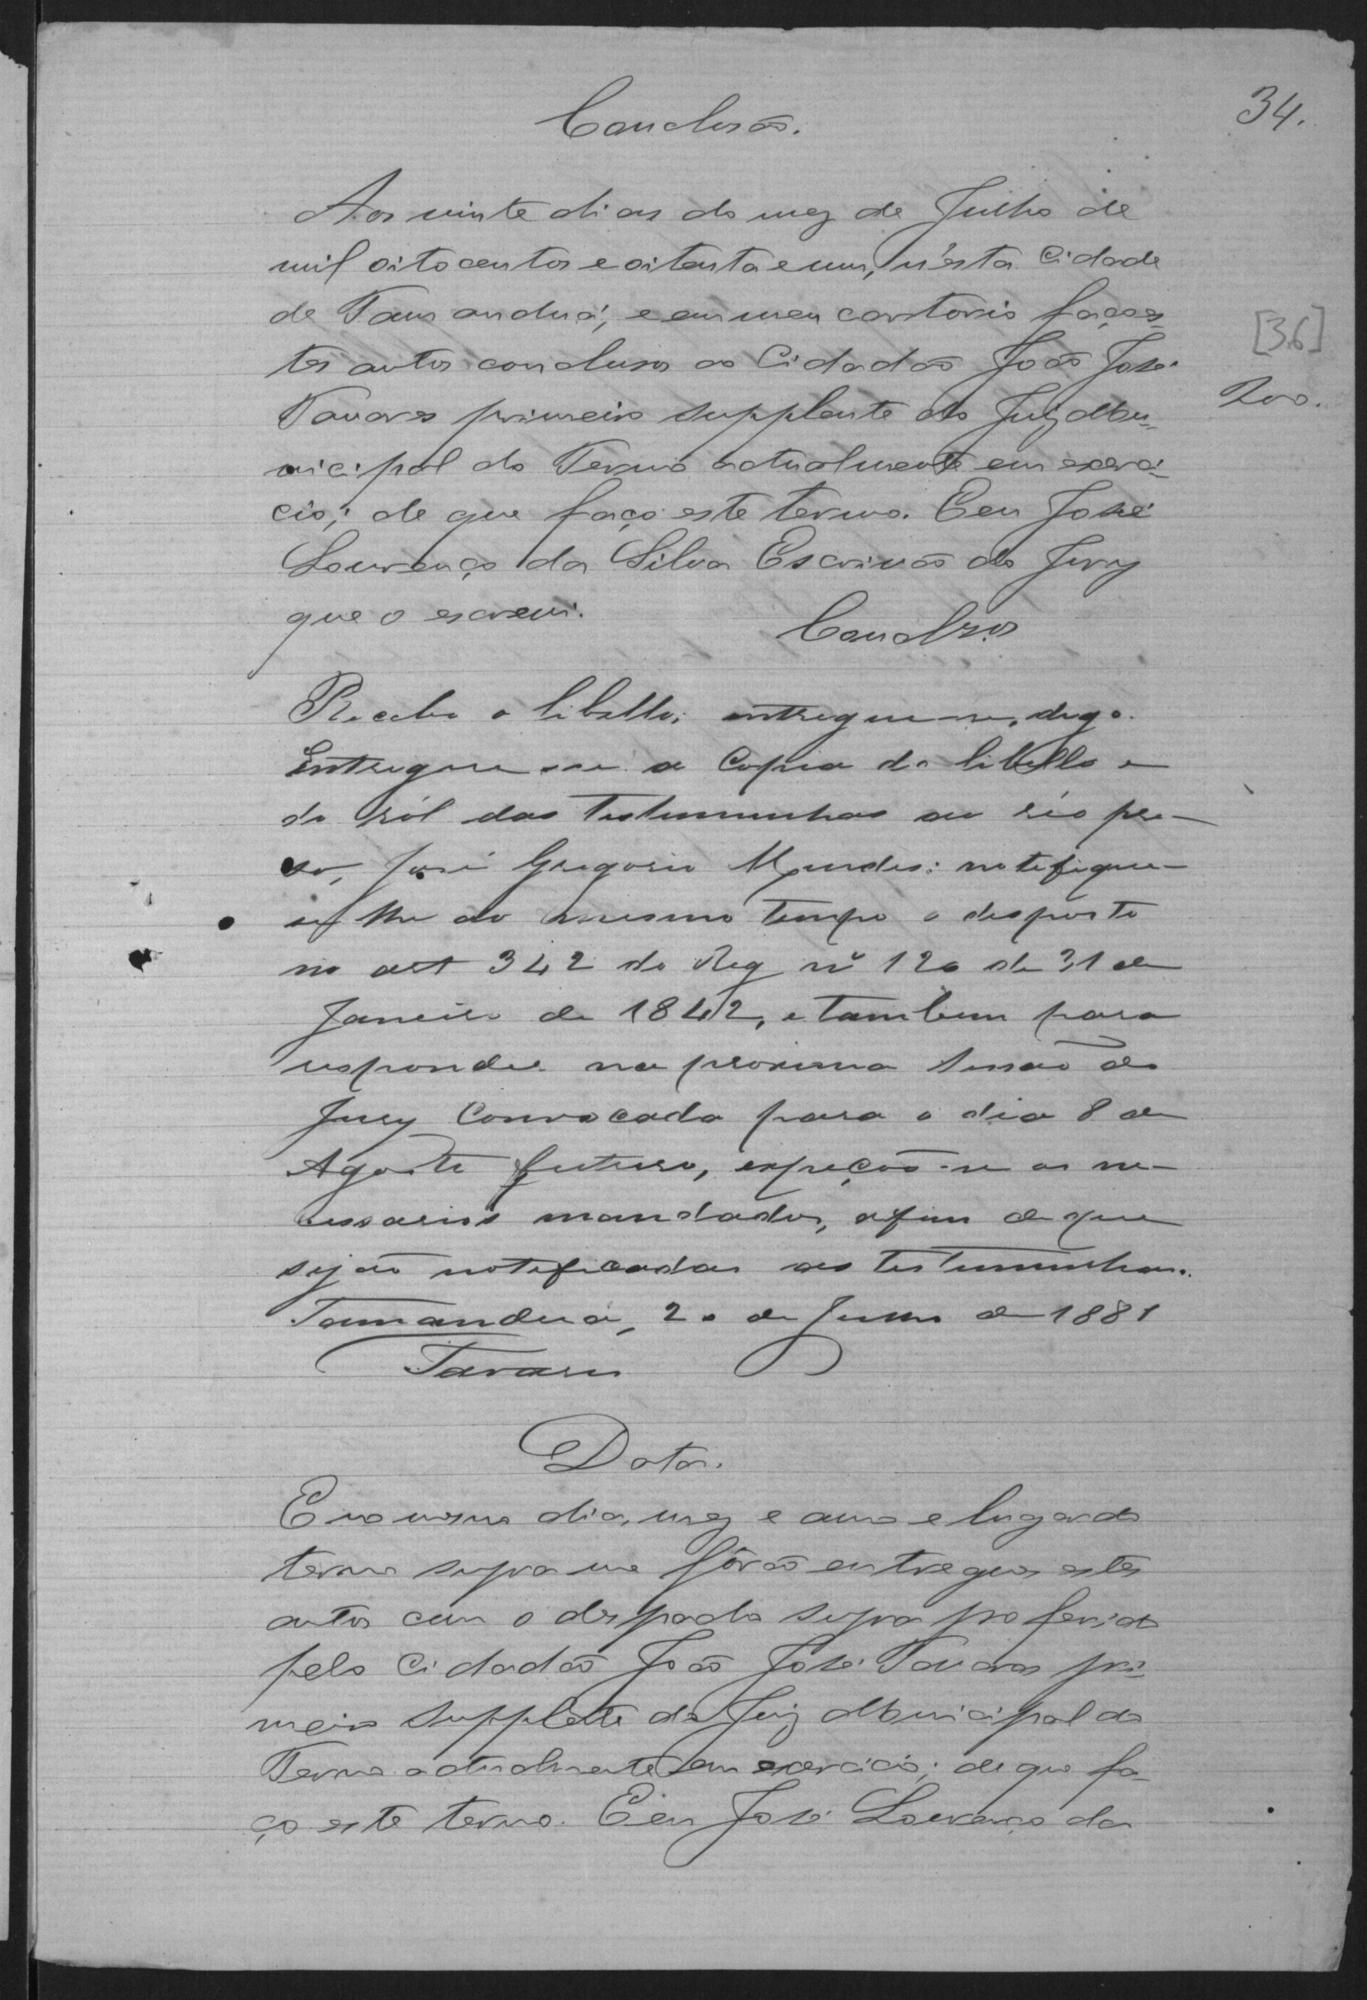 34.
Conclusão.
Aos vinte dias do mez de Julho de
mil oitocentos e oitenta e um, n'esta Cidade
de Tamanduá, e em meu cartorio faço es-
tes autos conclusos ao Cidadão João José
Tavares primeiro supplente do Juiz Mu-
nicipal do Termo actualmente em exerci-
cio; de que faço este termo. E eu José
Lourenço da Silva Escrivão do Jury
que o escrevi.
[36]
200.
Conclsos
Recebo o libello; entregue-se, digo.
Entregue-se a Copia do libello e
do ról das testemunhas ao réo pre-
so, José Gregorio Mendes: notifique-
se-lhe ao mesmo tempo o disposto
no art 342 do Reg nº 120 de 31 de
Janeiro de 1842, e tambem para
responder na proxima sessão do
Jury Convocada para o dia 8 de
Agosto futuro, expeção-se os ne-
cessarios mandados, afim de que
sejão notificadas as testemunhas.
Tamanduá, 20 de Julho de 1881
Tavares
Data.
E no mesmo dia, mez e anno e lugar do
termo supra me fôrão entregues estes
autos com o despacho supra proferido
pelo Cidadão João José Tavares pri-
meiro supplete do Juiz Municipal do
Termo actualmente em exercicio; de que fa-
ço este termo. E eu José Lourenço da